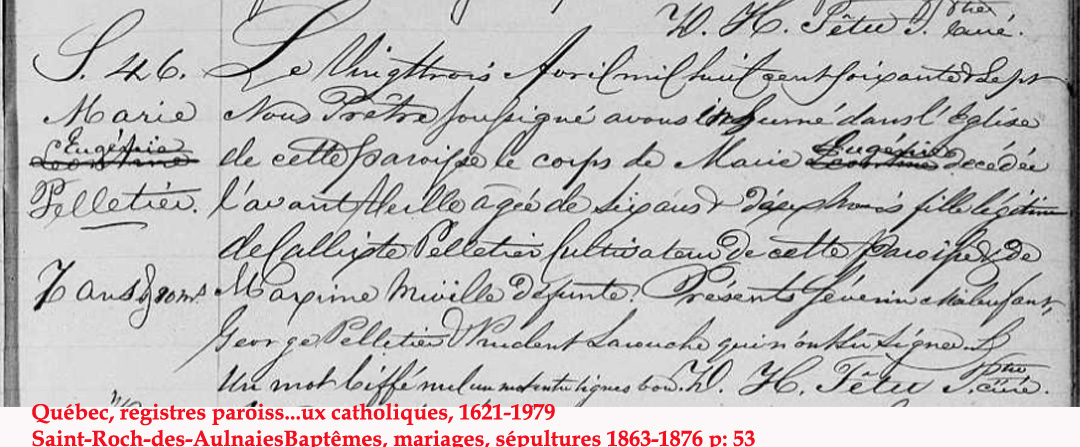 D. H. Têtu Ptre curé.
S. 46. Le Vingt trois Avril mil huit cent soixante & sept
Marie Nous Prêtre soussigné avons inhumé dans l'Eglise
Eugénie Leontine de cette paroisse le corps de Marie Eugénie Leontine décédée
Pelletier. l'avant Veille agée de six ans & dix mois fille légitime
de Callixte Pelletier Cultivateur de cette paroisse & de
7 ans & 10 ms Maxime Miville défunte. Présents Séverin Malenfant,
George Pelletier & Prudent Larouche qui n'ont su signer.
Un mot biffé nul un mot entre lignes bon. D. H. Têtu Ptre curé.
Québec, registres paroiss...ux catholiques, 1621-1979
Saint-Roch-des-AulnaiesBaptêmes, mariages, sépultures 1863-1876 p: 53